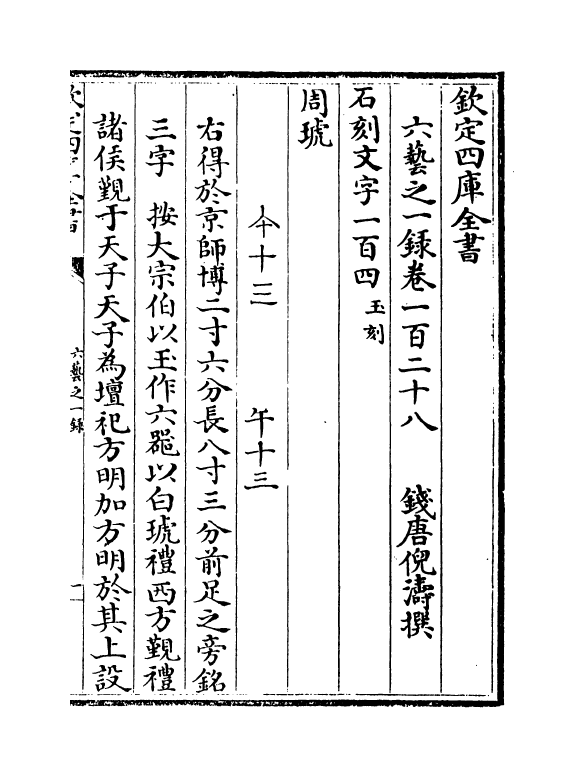 欽定四庫全書
六藝之一録卷一百二十八 錢唐倪濤撰
石刻文字一百四 玉刻
周琥
仐十三 午十三
右得於京師博二寸六分長八寸三分前足之旁銘
三字 按大宗伯以玉作六器以白琥禮西方覲禮
諸侯覲于天子天子為壇祀方明加方明於其上設
欽定四庫全書
六藝之一録
一